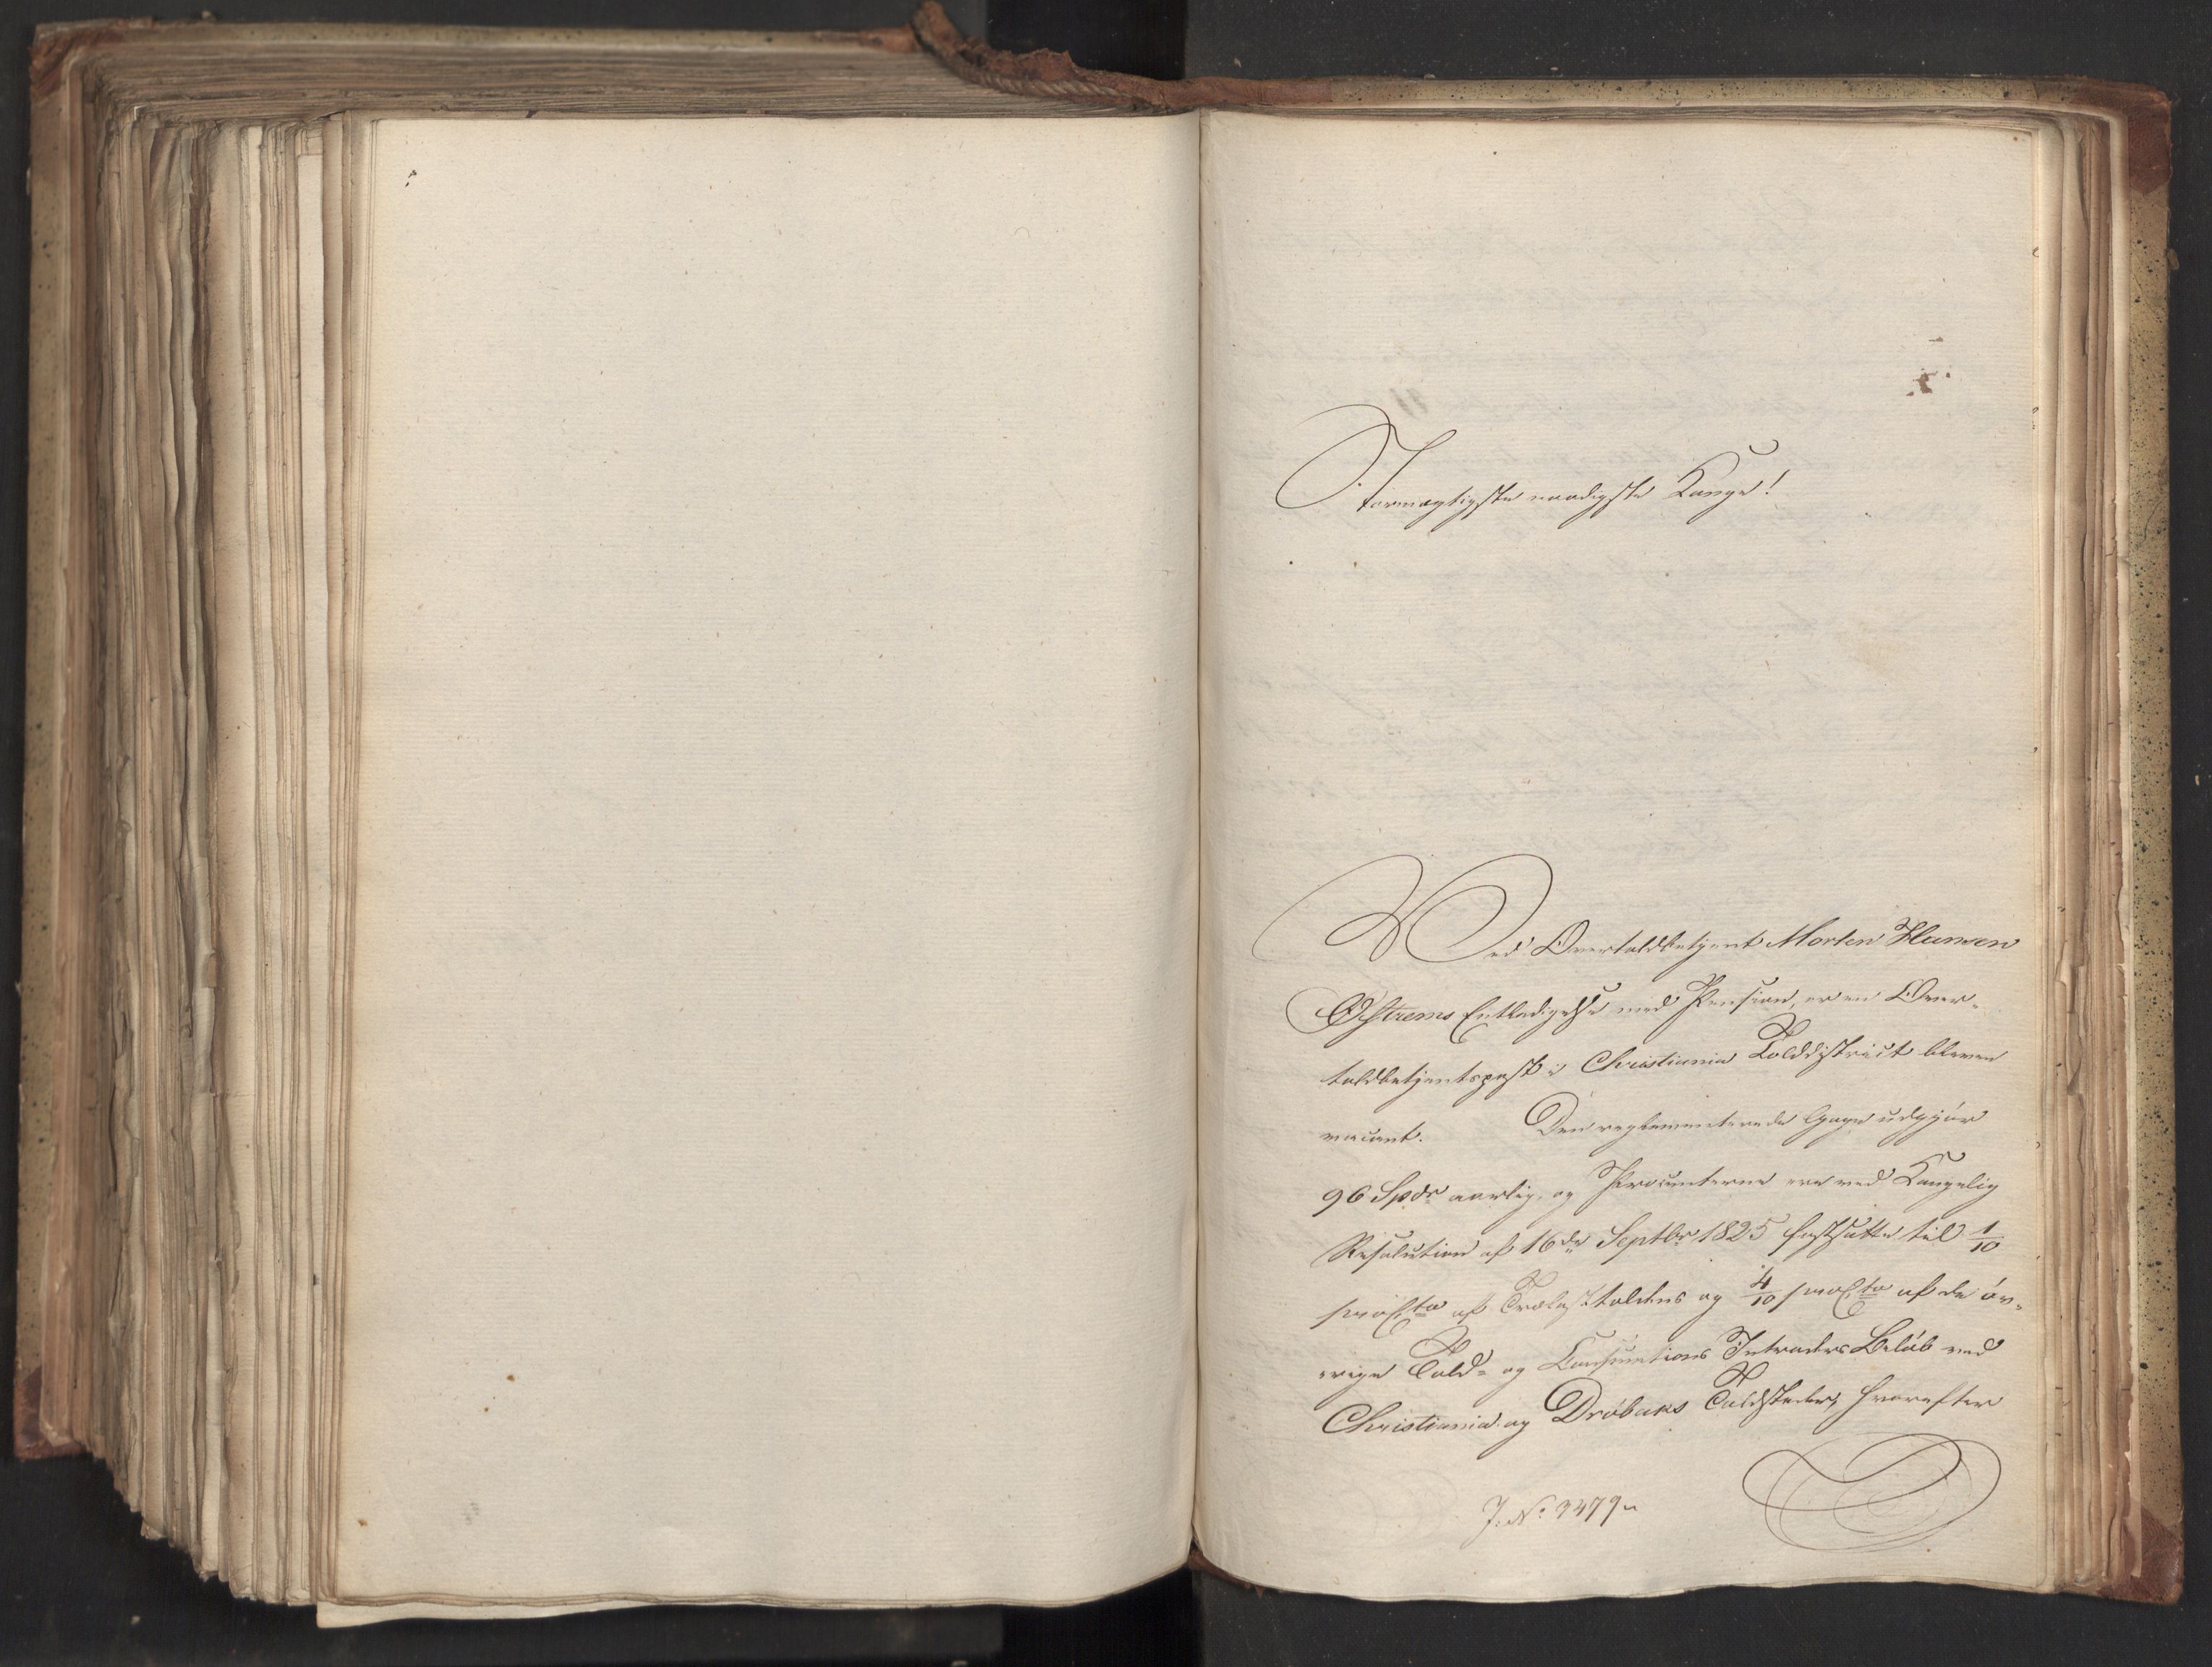 Stormægtigste naadigste Konge!
Ved Overtoldbetjent Morten Hansen
Østrems Entledigelse med Pension, er en Over-
toldbetjentspost i Christiania Tolddistrict bleven
vacant. Den reglementerede Gage udgjør
96 Spdr aarlig, og Procenterne ere ved Kongelig
Resolution af 16de Septbr 1825 fastsatte til 1/10
proCto af Trælasttoldens og 4/10 proCto af de øv-
rige Told- og Consumtions Intraders Beløb ved
Christiania og Drøbaks Toldsteder, hvorefter
J. No 3479